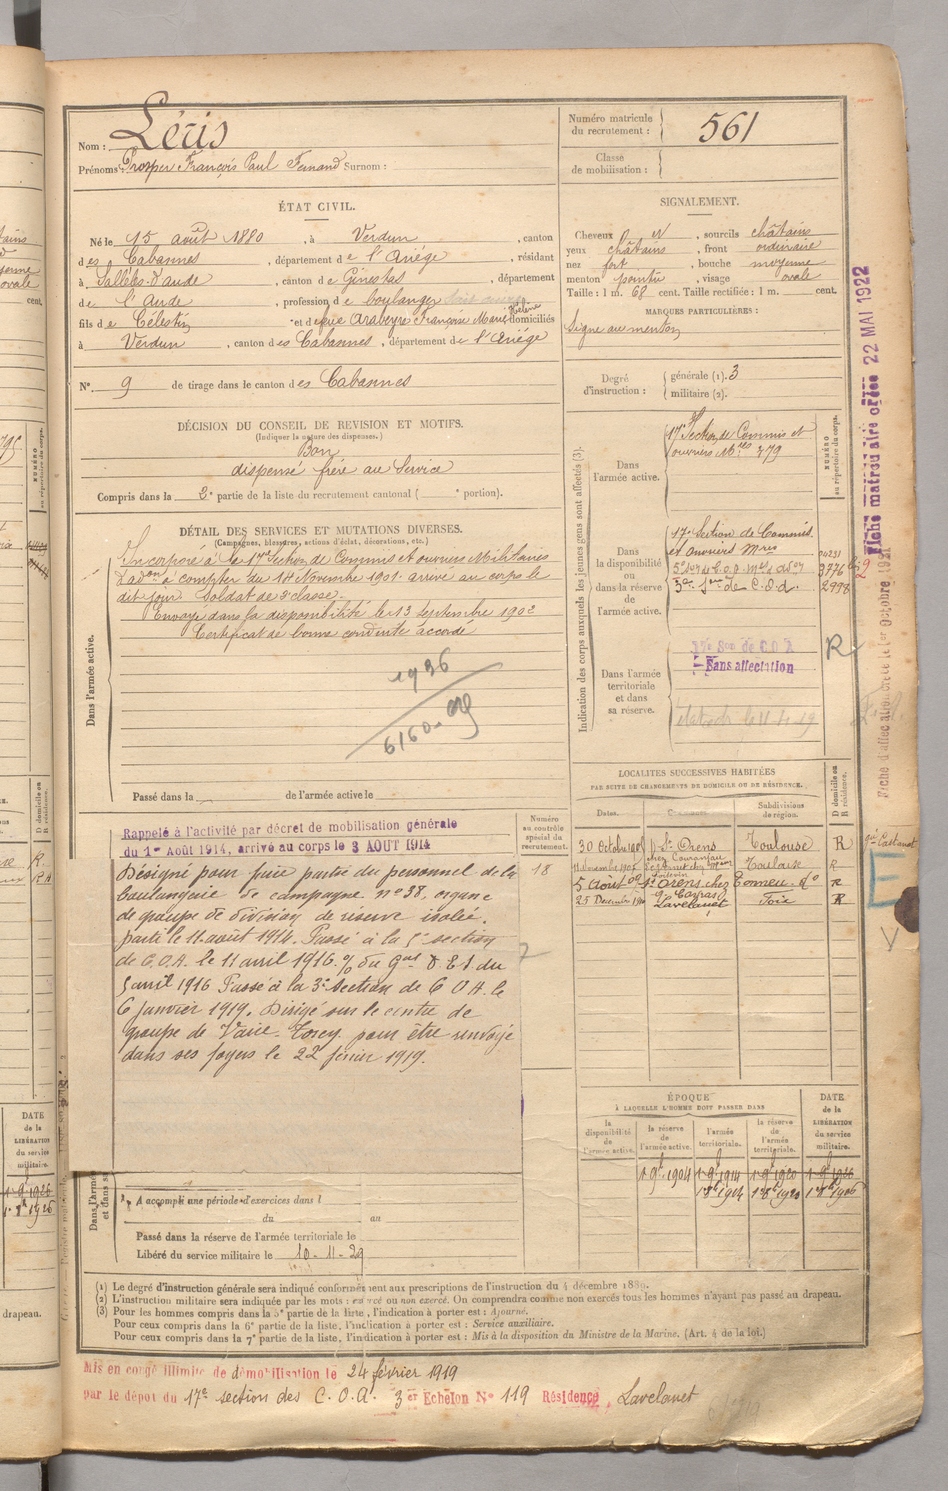 Nom : Léris
Prénoms : Prosper François Paul Fernand Surnom :
Numéro matricule du recrutement : 561
Classe de mobilisation :
ÉTAT CIVIL.
Né le 15 août 1880, à Verdun, canton
des Cabannes, département de l'Ariège, résidant
à Sallèles-d'Aude, canton de Ginestas, département
de l'Aude, profession de boulanger
fils de Célestin et de Françoise Marie Hélène domiciliés
à Verdun, canton des Cabannes, département de l'Ariége
N° 9 de tirage dans le canton des Cabannes
SIGNALEMENT.
Cheveux et, sourcils châtains
yeux châtains, front ordinaire
nez fort, bouche moyenne
menton pointu, visage ovale
Taille : 1 m. 68 cent. Taille rectifiée : 1 m. cent.
MARQUES PARTICULIÈRES :
Signe au menton
Degré d'instruction : générale (1). 3
militaire (2).
DÉCISION DU CONSEIL DE REVISION ET MOTIFS.
(Indiquer la nature des dispenses.)
Bon
dispensé frère au Service
Compris dans la 2e partie de la liste du recrutement cantonal ( e portion).
DÉTAIL DES SERVICES ET MUTATIONS DIVERSES.
(Campagnes, blessures, actions d'éclat, décorations, etc.)
Dans l'armée active.
Incorporé à la 17e Section de Commis et ouvriers Militaires
d'adon à compter du 14 Novembre 1901. arrivé au corps le
dit jour Soldat de 2e classe.
Envoyé dans la disponibilité le 13 septembre 1902
Certificat de bonne conduite accordé
1936
6160
Passé dans la de l'armée active le
Indication des corps auxquels les jeunes gens sont affectés (3).
NUMÉRO au répertoire du corps.
Dans l'armée active.
17e Section de Commis et
ouvriers Mres 379
Dans la disponibilité ou dans la réserve de l'armée active.
17e Section de Commis
et ouvriers Mres
3776
2998
Dans l'armée territoriale et dans sa réserve.
17e Son de C O A
Sans affectation
R
Fiche matriculaire créée 22 MAI 1922
Fiche d'affectation créée le 1er Octobre 1921
Numéro au contrôle spécial du recrutement.
18
Rappelé à l'activité par décret de mobilisation générale
du 1er Août 1914, arrivé au corps le 3 AOUT 1914
Désigné pour faire partie du personnel de la
boulangerie de campagne n° 38, organe
de groupe de division de réserve isolée.
parti le 11 août 1914. Passé à la 5e section
de C.O.A. le 11 avril 1916. % du Gal D.E.S du
5 avril 1916 Passé à la 3e Section de C O A. le
6 Janvier 1919. Dirigé sur le centre de
groupe de Vaire-Torcy pour être renvoyé
dans ses foyers le 22 février 1919.
LOCALITÉS SUCCESSIVES HABITÉES
PAR SUITE DE CHANGEMENTS DE DOMICILE OU DE RÉSIDENCE.
Dates. Communes. Subdivisions de région. D domicile ou R résidence.
30 Octobre St Orens Toulouse R
Toulouse R
5 Août 09 St Orens chez Tonneu do R
25 Décembre Lavelanet Foix R
ÉPOQUE
À LAQUELLE L'HOMME DOIT PASSER DANS
la disponibilité de l'armée active. la réserve de l'armée active. l'armée territoriale. la réserve de l'armée territoriale.
DATE de la LIBÉRATION du service militaire.
1 9bre 1904 1 9bre 1914 1 9bre 1920 1 9bre 1926
A accompli une période d'exercices dans l
du au
Passé dans la réserve de l'armée territoriale le
Libéré du service militaire le 10-11-29
(1) Le degré d'instruction générale sera indiqué conformément aux prescriptions de l'instruction du 4 décembre 1889.
(2) L'instruction militaire sera indiquée par les mots : exercé ou non exercé. On comprendra comme non exercés tous les hommes n'ayant pas passé au drapeau.
(3) Pour les hommes compris dans la 5e partie de la liste, l'indication à porter est : Ajourné.
Pour ceux compris dans la 6e partie de la liste, l'indication à porter est : Service auxiliaire.
Pour ceux compris dans la 7e partie de la liste, l'indication à porter est : Mis à la disposition du Ministre de la Marine. (Art. 4 de la loi.)
Mis en congé illimité de démobilisation le 24 février 1919
par le dépôt du 17e section des C.O.A. 3er Echelon N° 119 Résidence, Lavelanet